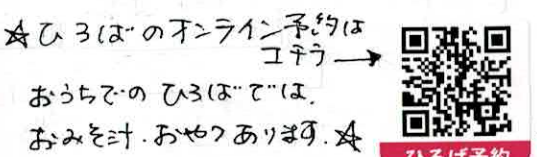 ☆ひろばのオンライン予約は
コチラ→
おうちでのひろばでは、
おみそ汁.おやつあります.☆
ひろば予約